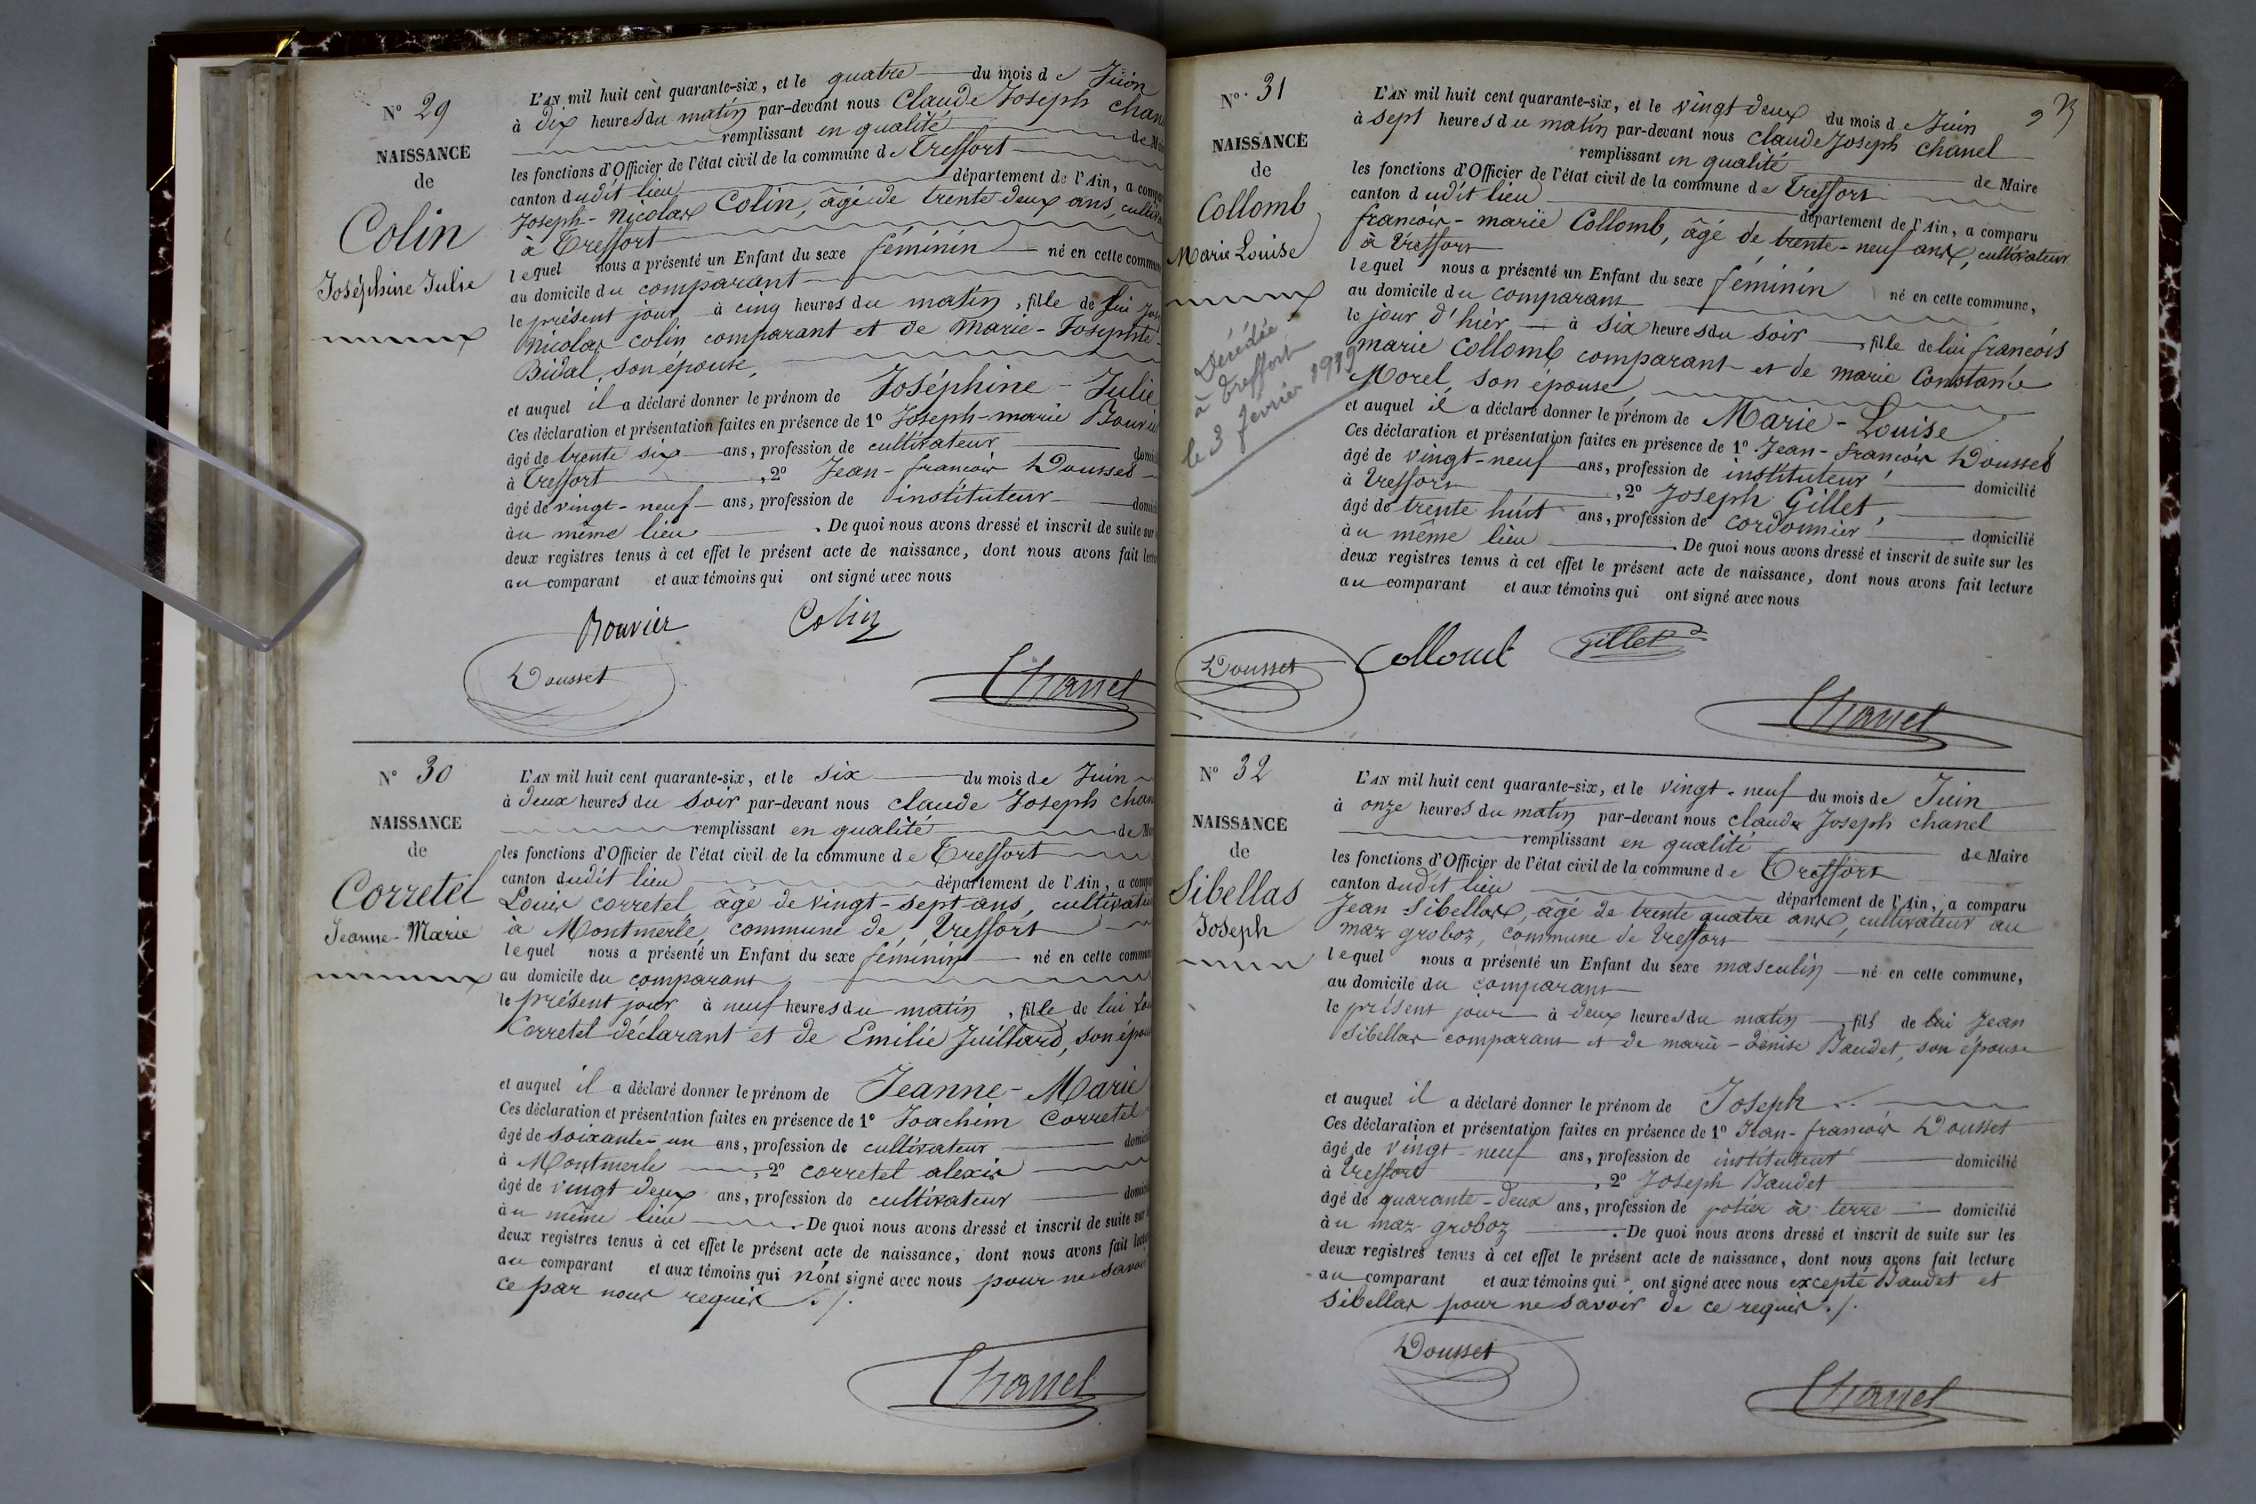 N° 29
NAISSANCE
de
Colin
Joséphine Julie
L'AN mil huit cent quarante-six, et le quatre du mois de Juin
à dix heures du matin par-devant nous Claude Joseph Chan
remplissant en qualité de M
les fonctions d'Officier de l'état civil de la commune de Treffort
canton dudit lieu département de l'Ain, a compa
Joseph-Nicolas Colin, âgé de trente deux ans, cultiva
à Treffort
lequel nous a présenté un Enfant du sexe féminin né en cette commun
au domicile du comparant
le présent jour à cinq heures du matin, fille de lui Jos
Nicolas Colin comparant et de Marie-Josephte
Bidal, son épouse,
et auquel il a déclaré donner le prénom de Joséphine-Julie
Ces déclaration et présentation faites en présence de 1° Joseph-marie Bouvie
âgé de trente six ans, profession de cultivateur domici
à Treffort, 2° Jean-francois Dousset
âgé de vingt-neuf ans, profession de instituteur domici
au même lieu. De quoi nous avons dressé et inscrit de suite sur
deux registres tenus à cet effet le présent acte de naissance, dont nous avons fait lect
au comparant et aux témoins qui ont signé avec nous
Bouvier Colin
Dousset Chanel
N° 30
NAISSANCE
de
Corretel
Jeanne-Marie
L'AN mil huit cent quarante-six, et le six du mois de Juin
à deux heures du soir par-devant nous claude Joseph chan
remplissant en qualité de M
les fonctions d'Officier de l'état civil de la commune de Treffort
canton dudit lieu département de l'Ain, a compa
Louis corretel âgé de vingt-sept ans, cultivateu
à Montmerle, commune de Treffort
lequel nous a présenté un Enfant du sexe féminin né en cette commun
au domicile du comparant
le présent jour à neuf heures du matin, fille de lui Lou
Corretel déclarant et de Emilie Juillard, son épou
et auquel il a déclaré donner le prénom de Jeanne-Marie
Ces déclaration et présentation faites en présence de 1° Joachim Corretel
âgé de soixante-un ans, profession de cultivateur domici
à Montmerle, 2° corretel alexis
âgé de vingt deux ans, profession de cultivateur domici
au même lieu. De quoi nous avons dressé et inscrit de suite sur
deux registres tenus à cet effet le présent acte de naissance, dont nous avons fait lect
au comparant et aux témoins qui n'ont signé avec nous pour ne savoir
ce par nous requis ./.
Chanel
23
N° 31
NAISSANCE
de
Collomb
Marie Louise
Décédée
à Treffort
le 3 février 1919
L'AN mil huit cent quarante-six, et le vingt deux du mois de Juin
à sept heures du matin par-devant nous claude Joseph chanel
remplissant en qualité de Maire
les fonctions d'Officier de l'état civil de la commune de Treffort
canton dudit lieu département de l'Ain, a comparu
francois-marie Collomb, âgé de trente-neuf ans, cultivateur
à Treffort
lequel nous a présenté un Enfant du sexe féminin né en cette commune,
au domicile du comparant
le jour d'hier à six heures du soir, fille de lui francois
marie Collomb comparant et de marie Constance
Morel, son épouse,
et auquel il a déclaré donner le prénom de Marie-Louise
Ces déclaration et présentation faites en présence de 1° Jean-francois Dousset
âgé de vingt-neuf ans, profession de instituteur domicilié
à Treffort, 2° Joseph Gillet,
âgé de trente huit ans, profession de cordonnier domicilié
au même lieu. De quoi nous avons dressé et inscrit de suite sur les
deux registres tenus à cet effet le présent acte de naissance, dont nous avons fait lecture
au comparant et aux témoins qui ont signé avec nous
Dousset Collomb Gillet
Chanel
N° 32
NAISSANCE
de
Sibellas
Joseph
L'AN mil huit cent quarante-six, et le vingt-neuf du mois de Juin
à onze heures du matin par-devant nous claude Joseph chanel
remplissant en qualité de Maire
les fonctions d'Officier de l'état civil de la commune de Treffort
canton dudit lieu département de l'Ain, a comparu
Jean Sibellas, âgé de trente quatre ans, cultivateur au
maz groboz, commune de Treffort
lequel nous a présenté un Enfant du sexe masculin né en cette commune,
au domicile du comparant
le présent jour à deux heures du matin, fils de lui Jean
Sibellas comparant et de marie-denise Baudet, son épouse
et auquel il a déclaré donner le prénom de Joseph
Ces déclaration et présentation faites en présence de 1° Jean-francois Dousset
âgé de vingt-neuf ans, profession de instituteur domicilié
à Treffort, 2° Joseph Baudet
âgé de quarante-deux ans, profession de potier à terre domicilié
au maz groboz. De quoi nous avons dressé et inscrit de suite sur les
deux registres tenus à cet effet le présent acte de naissance, dont nous avons fait lecture
au comparant et aux témoins qui ont signé avec nous excepté Baudet et
Sibellas pour ne savoir de ce requis ./.
Dousset
Chanel